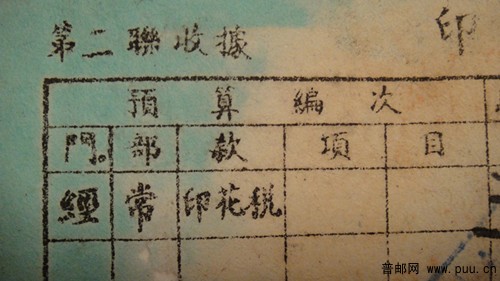 第二聯收據
印
預算編次
門 部 款 項 目
經 常 印花税
普邮网 www.puu.cn